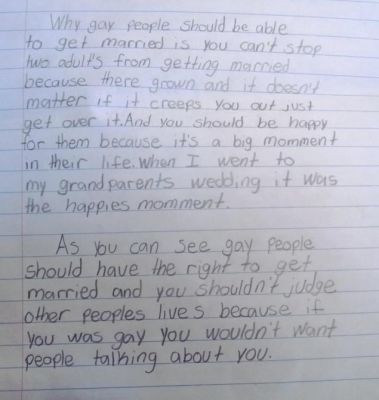 Why gay people should be able
to get married is you can't stop
two adult's from getting married
because there grown and it doesn't
matter if it creeps you out just
get over it. And you should be happy
for them because it's a big momment
in their life. When I went to
my grandparents wedding it was
the happies momment.
As you can see gay people
should have the right to get
married and you shouldn't judge
other peoples lives because if
you was gay you wouldn't want
people talking about you.